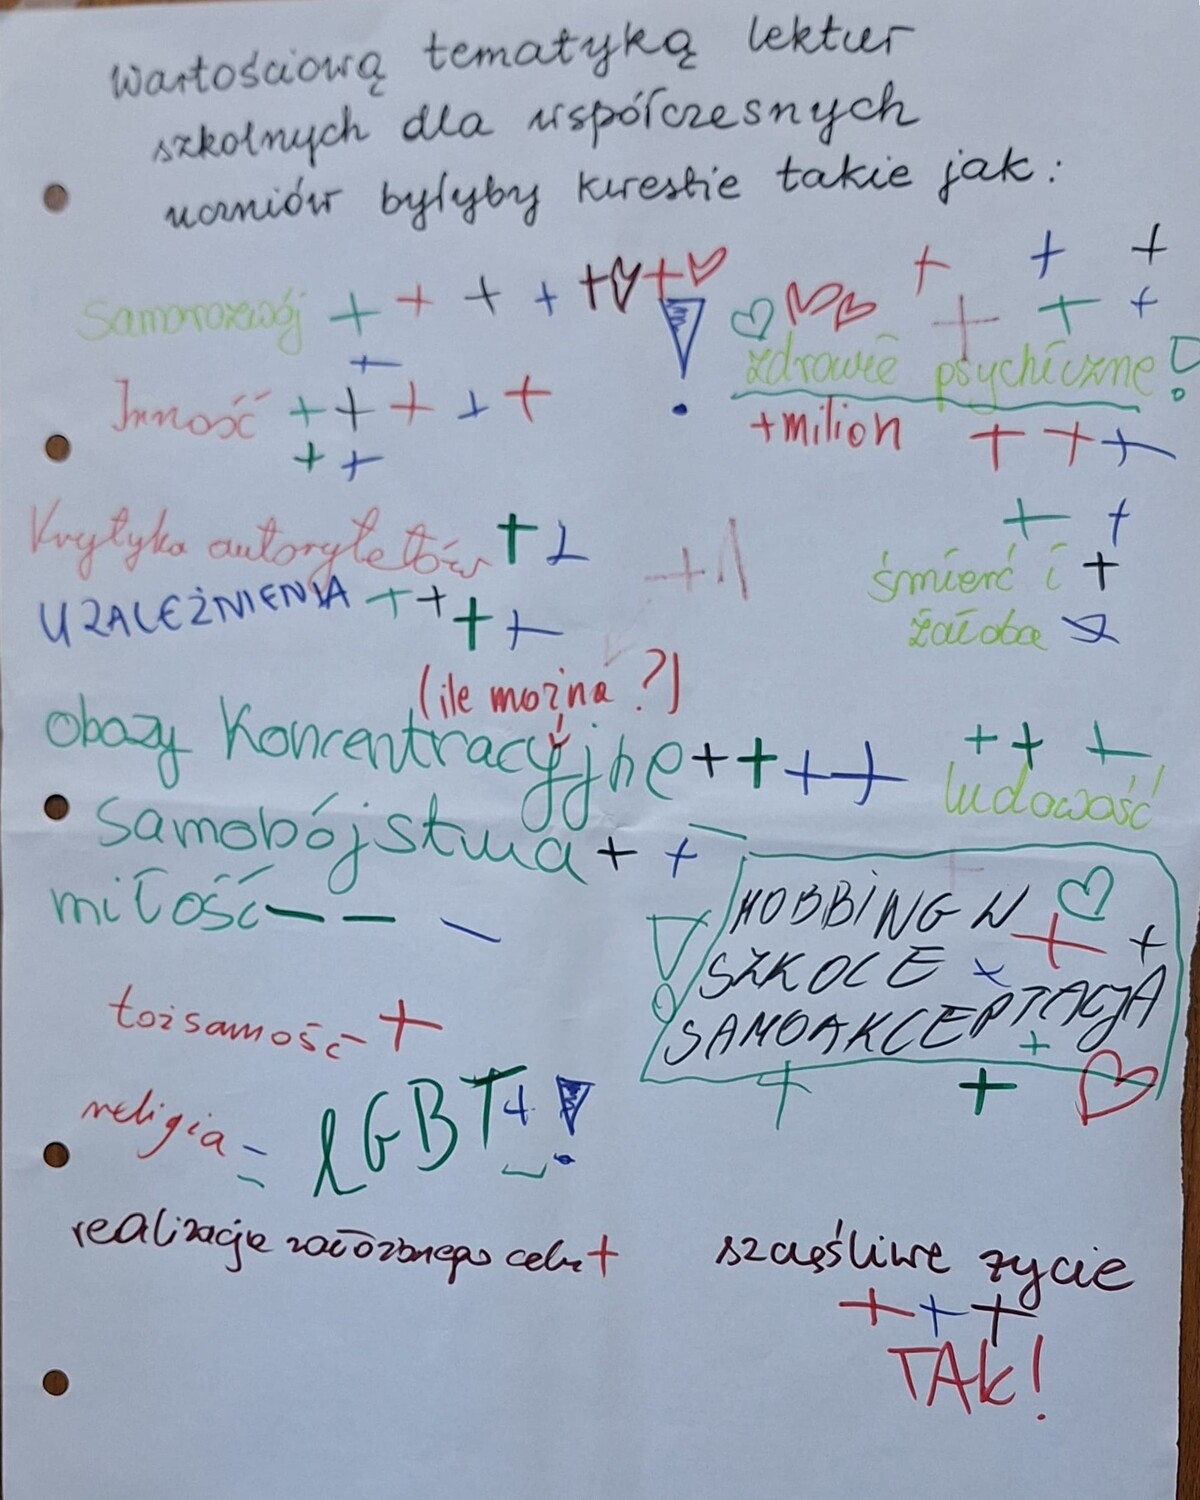 Wartościową tematyką lektur
szkolnych dla współczesnych
uczniów byłyby kwestie takie jak:
Samorozwój + + + + + +
!
+ + +
+ + +
zdrowie psychiczne!
+milion + + +
+
Inność + + + + +
+ +
Krytyka autorytetów + +
+1
+ +
śmierć i +
żałoba
UZALEŻNIENIA + + + +
(ile można?)
obozy Koncentracyjne + + + +
+ + +
ludowość
samobójstwa + +
miłość - - -
!
MOBBING W
SZKOLE + + +
SAMOAKCEPTACJA
+ + +
tożsamość +
religia - -
LGBT+ !
realizacja założonego celu +
szczęśliwe życie
+ + +
TAK!